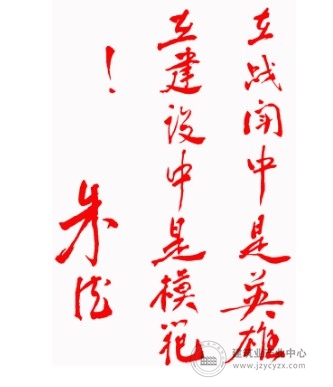 在战闘中是英雄
在建设中是模范
！
朱德
建筑业产业中心
www.jzycyzx.com